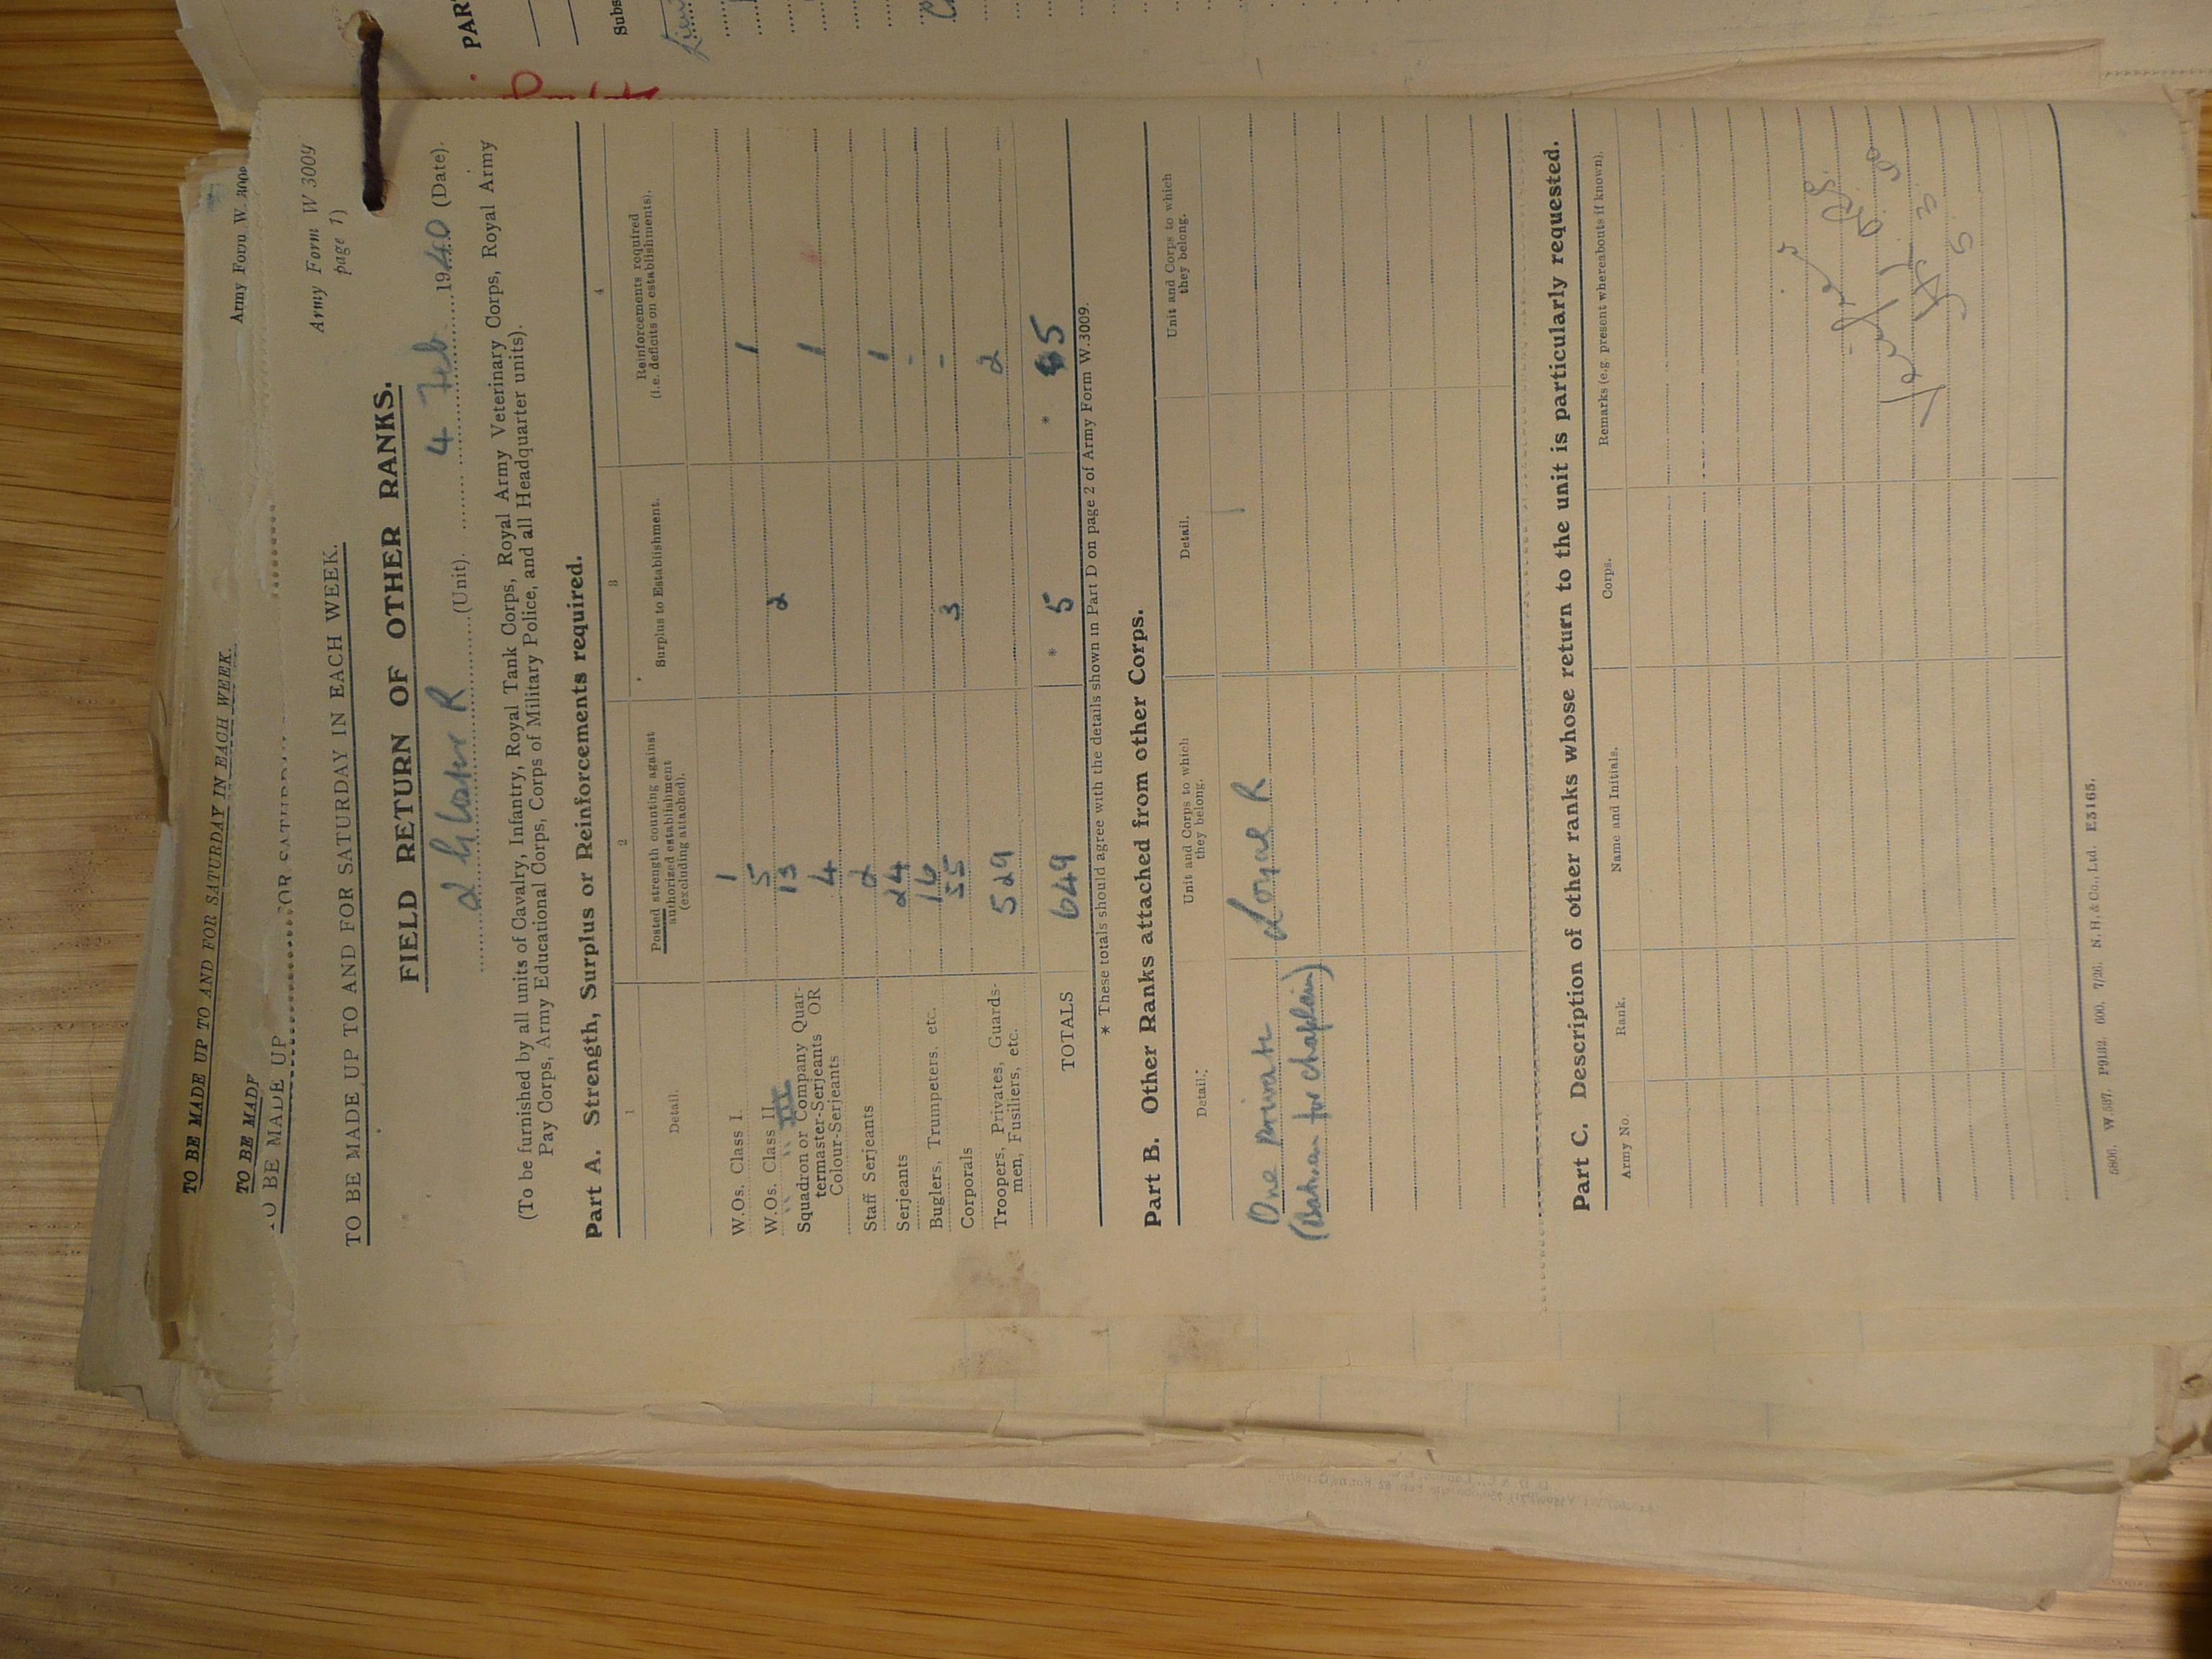 TO BE MADE UP TO AND FOR SATURDAY IN EACH WEEK.
Army Form W. 3009
TO BE MADE
TO BE MADE UP
FOR SATURDAY
Army Form W 3009
page 1)
TO BE MADE UP TO AND FOR SATURDAY IN EACH WEEK.
FIELD RETURN OF OTHER RANKS.
2 Glosr R (Unit). 4 Feb 1940 (Date).
(To be furnished by all units of Cavalry, Infantry, Royal Tank Corps, Royal Army Veterinary Corps, Royal Army
Pay Corps, Army Educational Corps, Corps of Military Police, and all Headquarter units).
Part A. Strength, Surplus or Reinforcements required.
1 2 3 4
Detail. Posted strength counting against authorized establishment (excluding attached). Surplus to Establishment. Reinforcements required (i.e. deficits on establishments).
W.Os. Class I 1
W.Os. Class II 5 1
" " III 13 2
Squadron or Company Quar-
termaster-Serjeants OR
Colour-Serjeants 4 1
Staff Serjeants 2
Serjeants 24 1
Buglers, Trumpeters, etc. 16 -
Corporals 55 3 -
Troopers, Privates, Guards-
men, Fusiliers, etc. 529 2
TOTALS 649 * 5 * 5
* These totals should agree with the details shown in Part D on page 2 of Army Form W.3009.
Part B. Other Ranks attached from other Corps.
Detail. Unit and Corps to which they belong. Detail. Unit and Corps to which they belong.
One private Loyal R
(Batman for chaplain)
Part C. Description of other ranks whose return to the unit is particularly requested.
Army No. Rank. Name and Initials. Corps. Remarks (e.g. present whereabouts if known).
6806. W.537. P9132. 600. 7/26. N.H. & Co., Ltd. E3165.
PAR
Subs